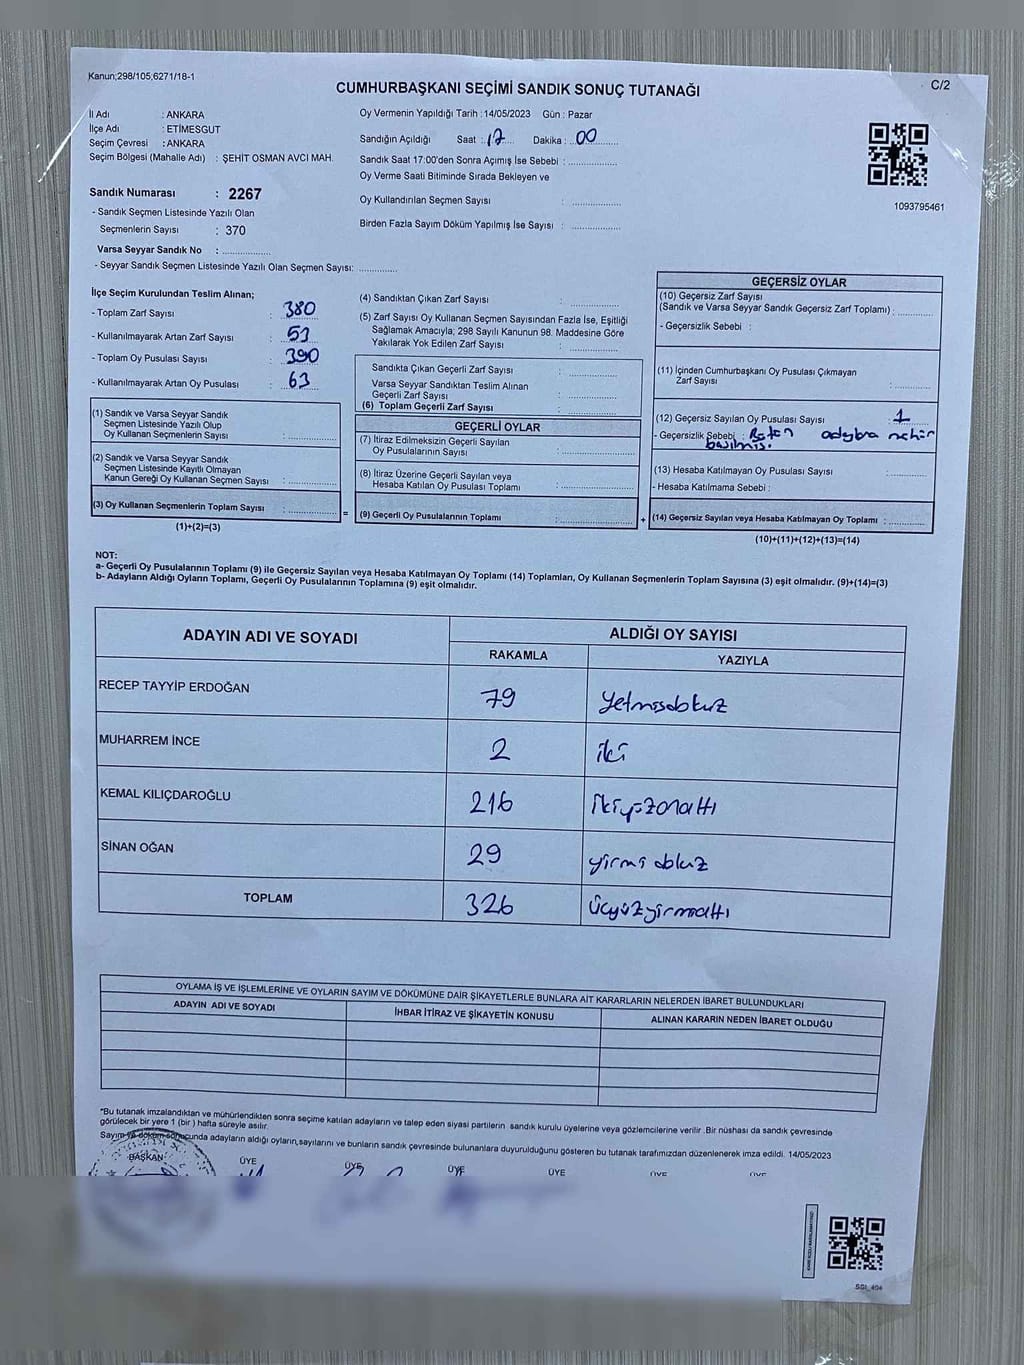 Kanun;298/105;6271/18-1
C/2
CUMHURBAŞKANI SEÇİMİ SANDIK SONUÇ TUTANAĞI
İl Adı : ANKARA
İlçe Adı : ETİMESGUT
Seçim Çevresi : ANKARA
Seçim Bölgesi (Mahalle Adı) : ŞEHİT OSMAN AVCI MAH.
Oy Vermenin Yapıldığı Tarih : 14/05/2023 Gün : Pazar
Sandığın Açıldığı Saat : 17 Dakika : 00
Sandık Saat 17:00'den Sonra Açımış İse Sebebi :
Oy Verme Saati Bitiminde Sırada Bekleyen ve
Oy Kullandırılan Seçmen Sayısı :
Birden Fazla Sayım Döküm Yapılmış İse Sayısı :
1093795461
Sandık Numarası : 2267
- Sandık Seçmen Listesinde Yazılı Olan
Seçmenlerin Sayısı : 370
Varsa Seyyar Sandık No :
- Seyyar Sandık Seçmen Listesinde Yazılı Olan Seçmen Sayısı:
İlçe Seçim Kurulundan Teslim Alınan;
- Toplam Zarf Sayısı : 380
- Kullanılmayarak Artan Zarf Sayısı : 53
- Toplam Oy Pusulası Sayısı : 390
- Kullanılmayarak Artan Oy Pusulası : 63
(1) Sandık ve Varsa Seyyar Sandık
Seçmen Listesinde Yazılı Olup
Oy Kullanan Seçmenlerin Sayısı :
(2) Sandık ve Varsa Seyyar Sandık
Seçmen Listesinde Kayıtlı Olmayan
Kanun Gereği Oy Kullanan Seçmen Sayısı :
(3) Oy Kullanan Seçmenlerin Toplam Sayısı :
(1)+(2)=(3)
(4) Sandıktan Çıkan Zarf Sayısı :
(5) Zarf Sayısı Oy Kullanan Seçmen Sayısından Fazla İse, Eşitliği
Sağlamak Amacıyla; 298 Sayılı Kanunun 98. Maddesine Göre
Yakılarak Yok Edilen Zarf Sayısı :
Sandıkta Çıkan Geçerli Zarf Sayısı :
Varsa Seyyar Sandıktan Teslim Alınan
Geçerli Zarf Sayısı :
(6) Toplam Geçerli Zarf Sayısı :
GEÇERLİ OYLAR
(7) İtiraz Edilmeksizin Geçerli Sayılan
Oy Pusulalarının Sayısı :
(8) İtiraz Üzerine Geçerli Sayılan veya
Hesaba Katılan Oy Pusulası Toplamı :
= (9) Geçerli Oy Pusulalarının Toplamı :
GEÇERSİZ OYLAR
(10) Geçersiz Zarf Sayısı
(Sandık ve Varsa Seyyar Sandık Geçersiz Zarf Toplamı) :
- Geçersizlik Sebebi :
(11) İçinden Cumhurbaşkanı Oy Pusulası Çıkmayan
Zarf Sayısı :
(12) Geçersiz Sayılan Oy Pusulası Sayısı : 1
- Geçersizlik Sebebi : Bütün adaylara mühür
basılmış.
(13) Hesaba Katılmayan Oy Pusulası Sayısı :
- Hesaba Katılmama Sebebi :
+ (14) Geçersiz Sayılan veya Hesaba Katılmayan Oy Toplamı :
(10)+(11)+(12)+(13)=(14)
NOT:
a- Geçerli Oy Pusulalarının Toplamı (9) ile Geçersiz Sayılan veya Hesaba Katılmayan Oy Toplamı (14) Toplamları, Oy Kullanan Seçmenlerin Toplam Sayısına (3) eşit olmalıdır. (9)+(14)=(3)
b- Adayların Aldığı Oyların Toplamı, Geçerli Oy Pusulalarının Toplamına (9) eşit olmalıdır.
ADAYIN ADI VE SOYADI
ALDIĞI OY SAYISI
RAKAMLA YAZIYLA
RECEP TAYYİP ERDOĞAN 79 yetmişdokuz
MUHARREM İNCE 2 iki
KEMAL KILIÇDAROĞLU 216 ikiyüzonaltı
SİNAN OĞAN 29 yirmi dokuz
TOPLAM 326 üçyüzyirmialtı
OYLAMA İŞ VE İŞLEMLERİNE VE OYLARIN SAYIM VE DÖKÜMÜNE DAİR ŞİKAYETLERLE BUNLARA AİT KARARLARIN NELERDEN İBARET BULUNDUKLARI
ADAYIN ADI VE SOYADI İHBAR İTİRAZ VE ŞİKAYETİN KONUSU ALINAN KARARIN NEDEN İBARET OLDUĞU
*Bu tutanak imzalandıktan ve mühürlendikten sonra seçime katılan adayların ve talep eden siyasi partilerin sandık kurulu üyelerine veya gözlemcilerine verilir .Bir nüshası da sandık çevresinde
görülecek bir yere 1 (bir ) hafta süreyle asılır.
Sayım ve döküm sonucunda adayların aldığı oyların,sayılarını ve bunların sandık çevresinde bulunanlara duyurulduğunu gösteren bu tutanak tarafımızdan düzenlenerek imza edildi. 14/05/2023
BAŞKAN ÜYE ÜYE ÜYE ÜYE ÜYE ÜYE